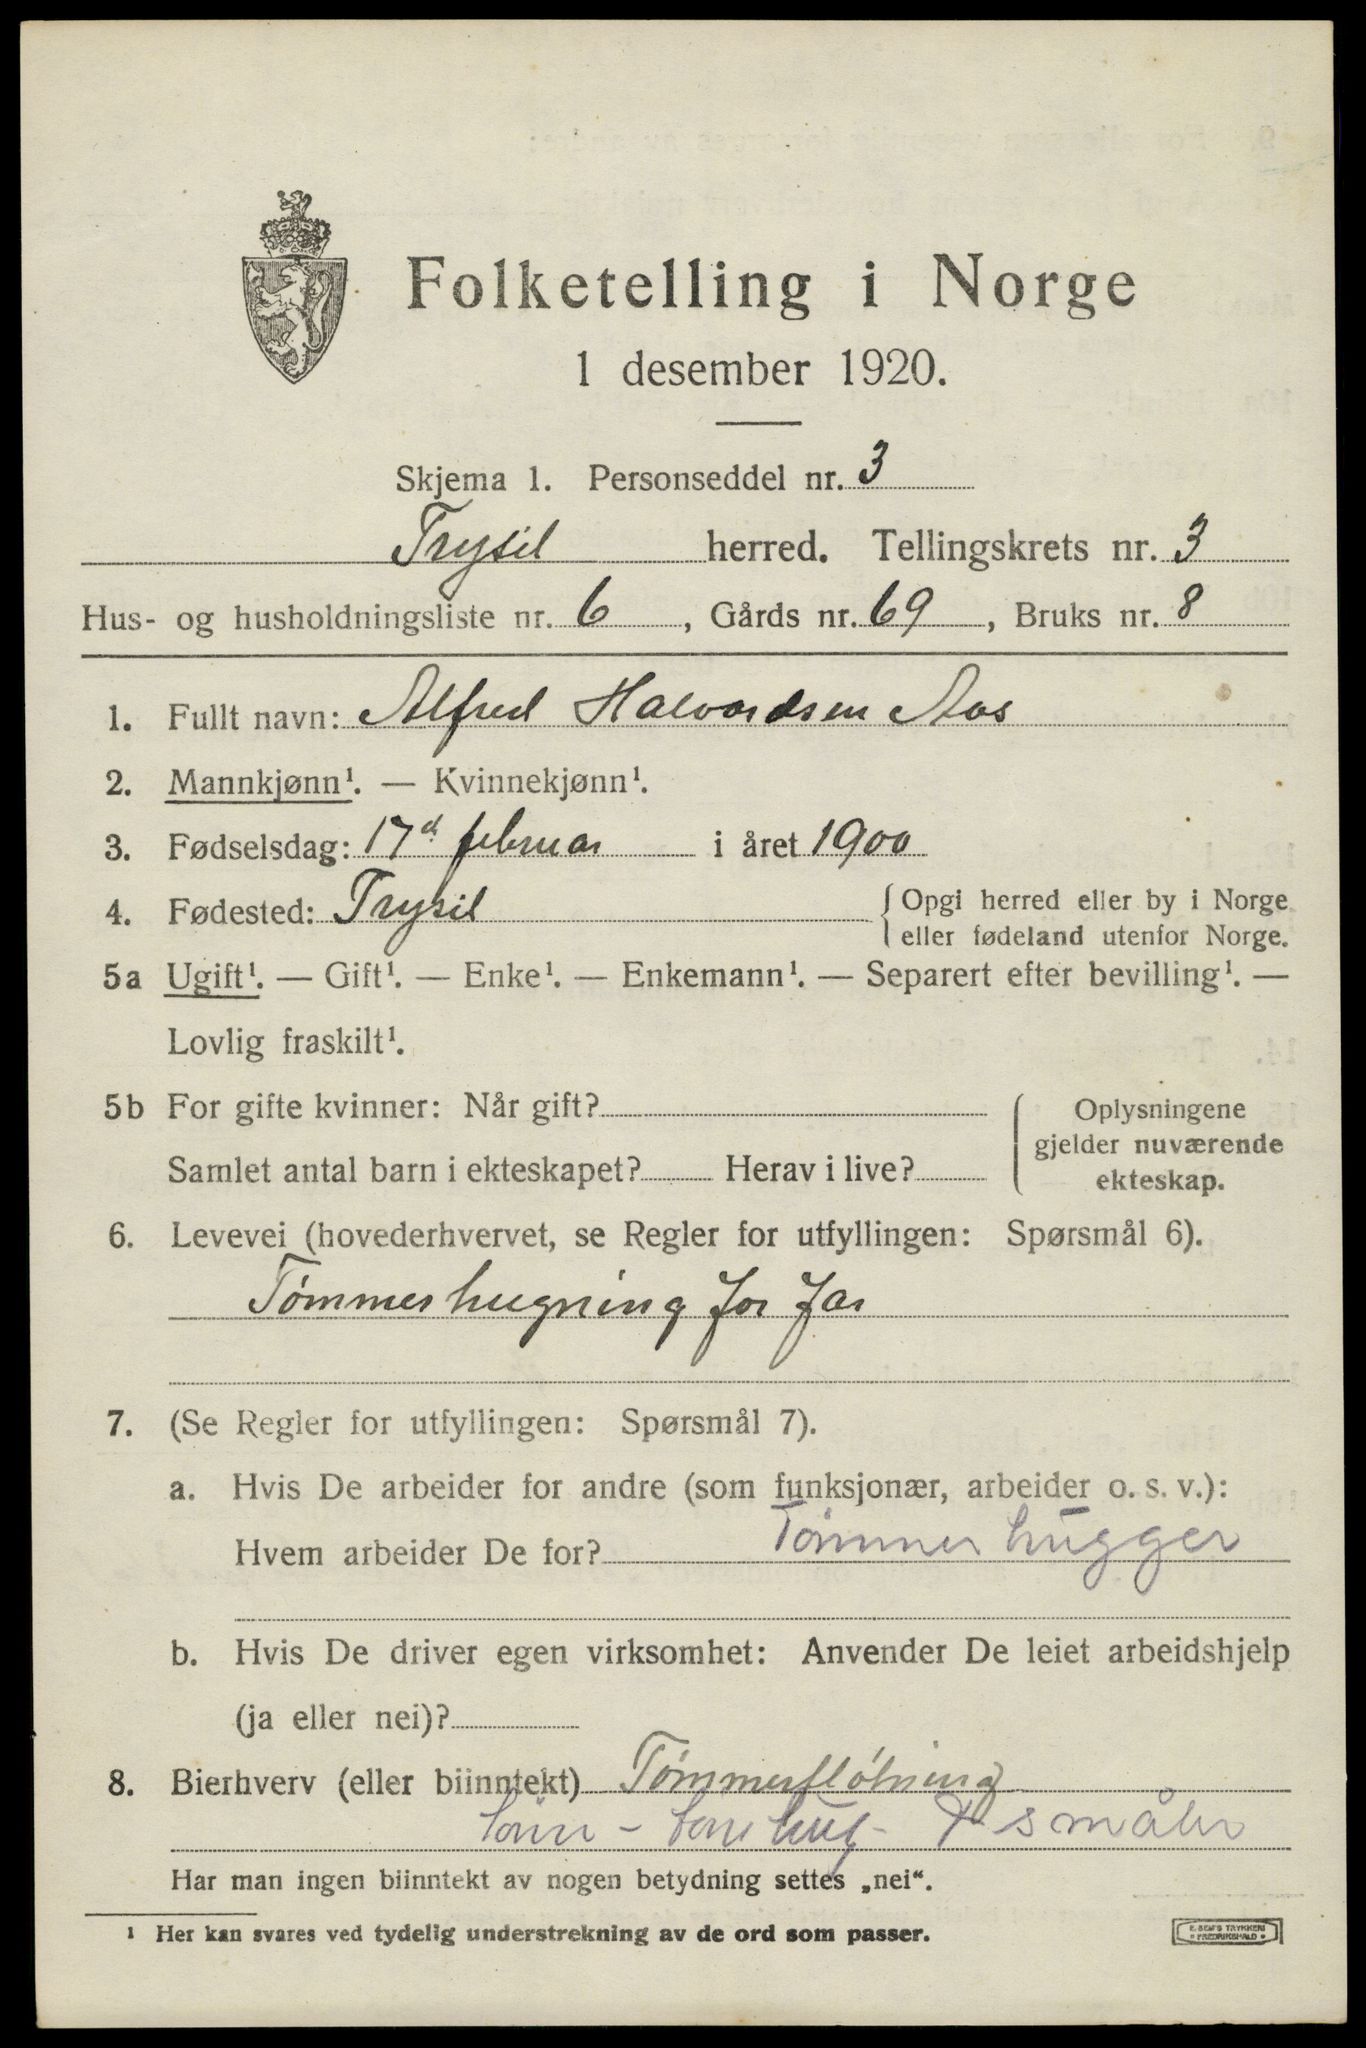 Folketelling i Norge
1 desember 1920.
Skjema 1. Personseddel nr. 3
Trysil herred. Tellingskrets nr. 3
Hus- og husholdningsliste nr. 6, Gårds nr. 69, Bruks nr. 8
1. Fullt navn: Alfred Halvordsen Aas
2. Mannkjønn¹. — Kvinnekjønn¹.
3. Fødselsdag: 17d februar i året 1900
4. Fødested: Trysil { Opgi herred eller by i Norge
eller fødeland utenfor Norge.
5a Ugift¹. — Gift¹. — Enke¹. — Enkemann¹. — Separert efter bevilling¹. —
Lovlig fraskilt¹.
5b For gifte kvinner: Når gift?
Samlet antal barn i ekteskapet? Herav i live?
{ Oplysningene
gjelder nuværende
ekteskap.
6. Levevei (hovederhvervet, se Regler for utfyllingen: Spørsmål 6).
Tømmerhugning for far
7. (Se Regler for utfyllingen: Spørsmål 7).
a. Hvis De arbeider for andre (som funksjonær, arbeider o. s. v.):
Hvem arbeider De for? Tømmerhugger
b. Hvis De driver egen virksomhet: Anvender De leiet arbeidshjelp
(ja eller nei)?
8. Bierhverv (eller biinntekt) Tømmerfløtning
Har man ingen biinntekt av nogen betydning settes „nei“.
¹ Her kan svares ved tydelig understrekning av de ord som passer.
E. SEM'S TRYKKERI
FREDRIKSHALD